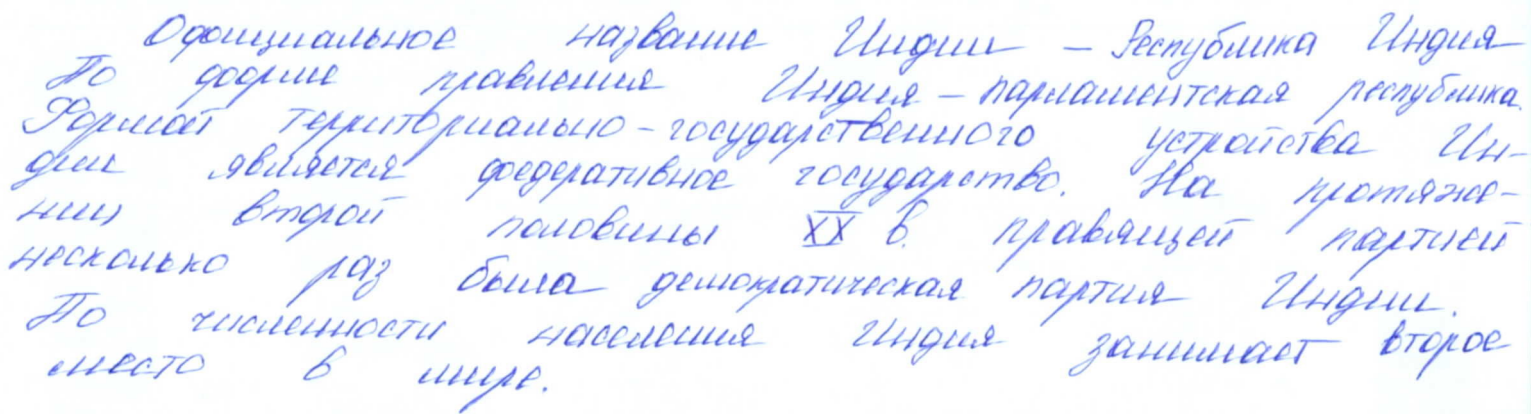 Официальное название Индии – Республика Индия
По форме правления Индия – парламентская республика.
Формой территориально-государственного устройства Ин-
дии является федеративное государство. На протяже-
нии второй половины XX в. правящей партией
несколько раз была демократическая партия Индии.
По численности населения Индия занимает второе
место в мире.